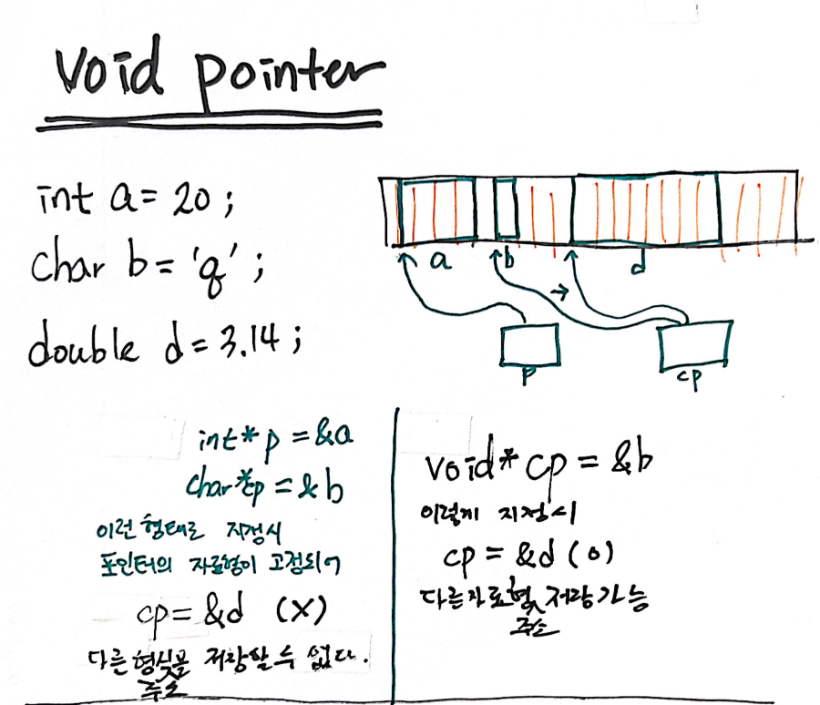 Void pointer
int a = 20 ;
char b = 'q' ;
double d = 3.14 ;
a b d
p cp
int* p = &a
char* cp = & b
이런 형태로 지정시
포인터의 자료형이 고정되어
cp = &d (X)
다른 형식을 저장할 수 없다.
주소
void* cp = &b
이렇게 지정시
cp = &d (o)
다른 자료형 저장가능
주소